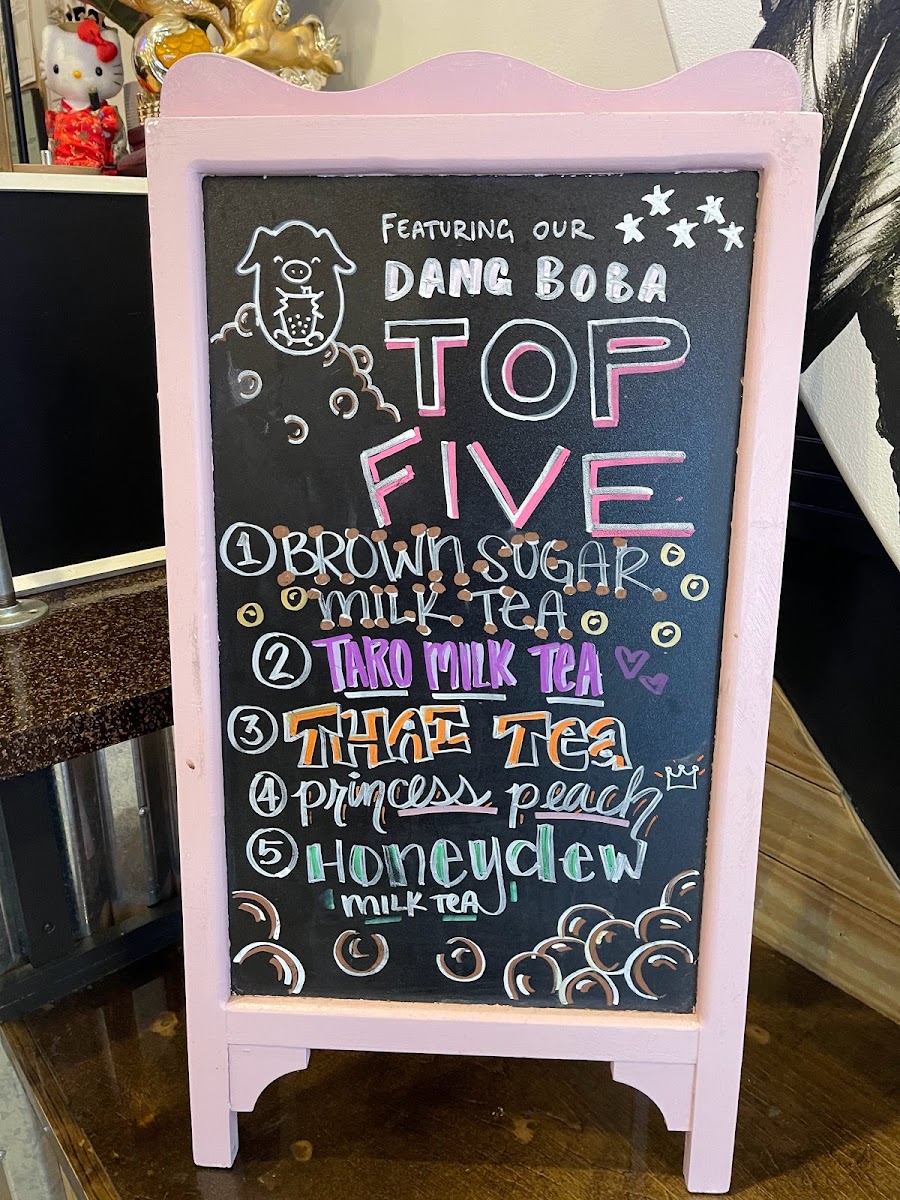 FEATURING OUR
DANG BOBA
TOP
FIVE
1 BROWN SUGAR
MILK TEA
2 TARO MILK TEA
3 THAI TEA
4 princess peach
5 Honeydew
MILK TEA